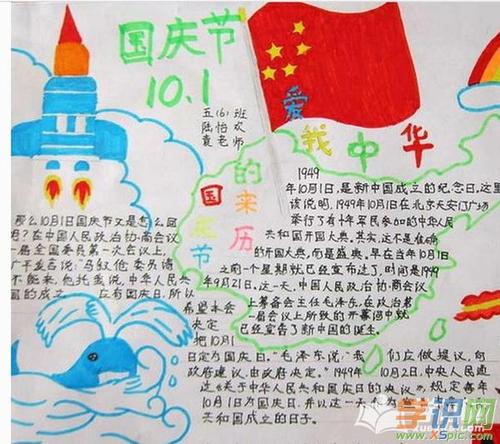 国庆节
10.1
五(6)班
陆怡欢
袁老师
爱我中华
国庆节的来历
1949
年10月1日,是新中国成立的纪念日,这里
该说明,1949年10月1日在北京天安门广场
举行了有十年军民参加的中华人民
共和国开国大典,其实,这不是准确
的开国大典,而是盛典,早在当年10月1日
之前一个星期就已经宣布过了,时间是1949
年9月21日,这一天,中国人民政治协商会议
上筹备会主任毛泽东,在政治第
一届会议上所致的开幕词中就
已经宣告了新中国的诞生。
那么10月1日国庆节又是怎么回
?在中国人民政治协商会议
一届全国委员第一次会议上,
广平发言说:“马叙伦委员请
不能来,他托我说,中华人民共
国的成立 有国庆日,所以
希望本会
决定
把10月1
日定为国庆日,"毛泽东说,"我们应做提议,向
政府建议,由政府决定。"1949年10月2日,中央人民
过《关于中华人民共和国国庆日的决议》,规定每年
10月1日为国庆日,并以这一天作为
共和国成立的日子。
学识网
www.xspic.com